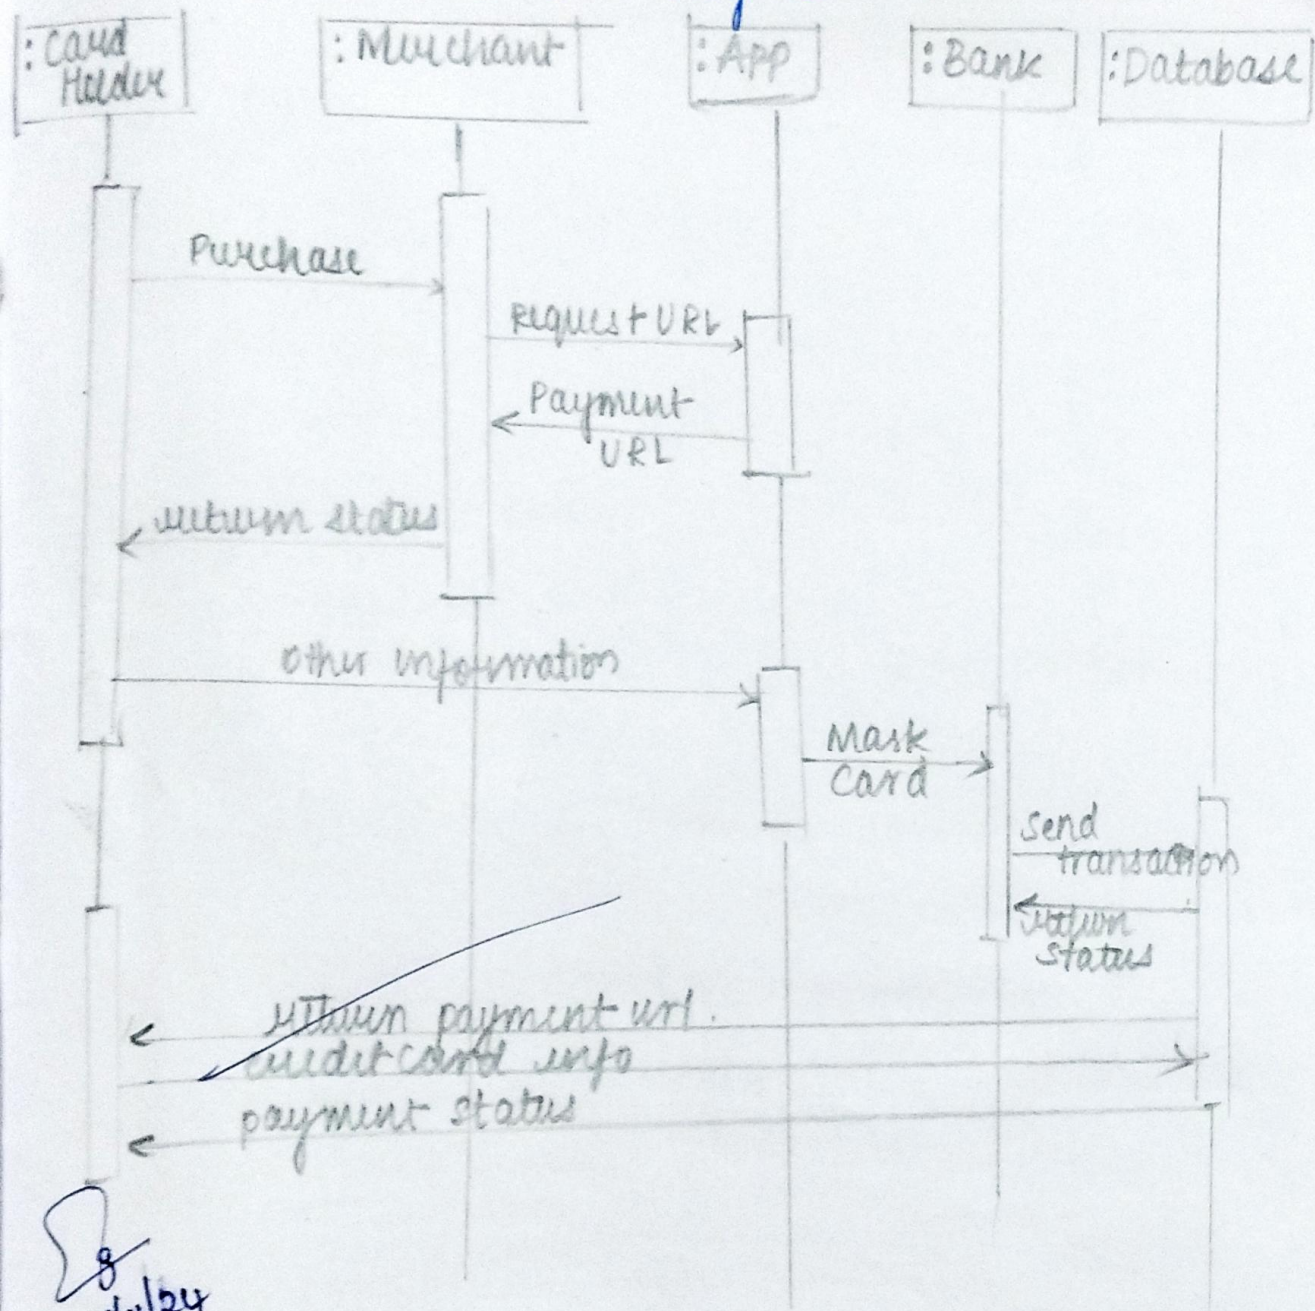 :Card
Holder
:Merchant
:App
:Bank
:Database
Purchase
Request URL
Payment
URL
return status
other information
Mask
Card
Send
transaction
return
status
return payment url.
credit card info
payment status